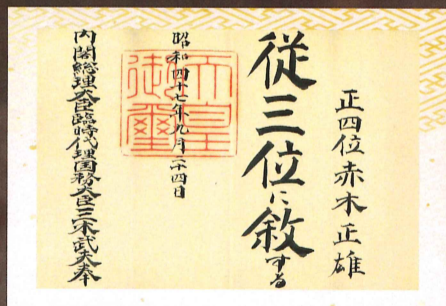 正四位赤木正雄
従三位に敘する
天皇御璽
昭和四十七年九月二十四日
内閣総理大臣臨時代理国務大臣三木武夫奉